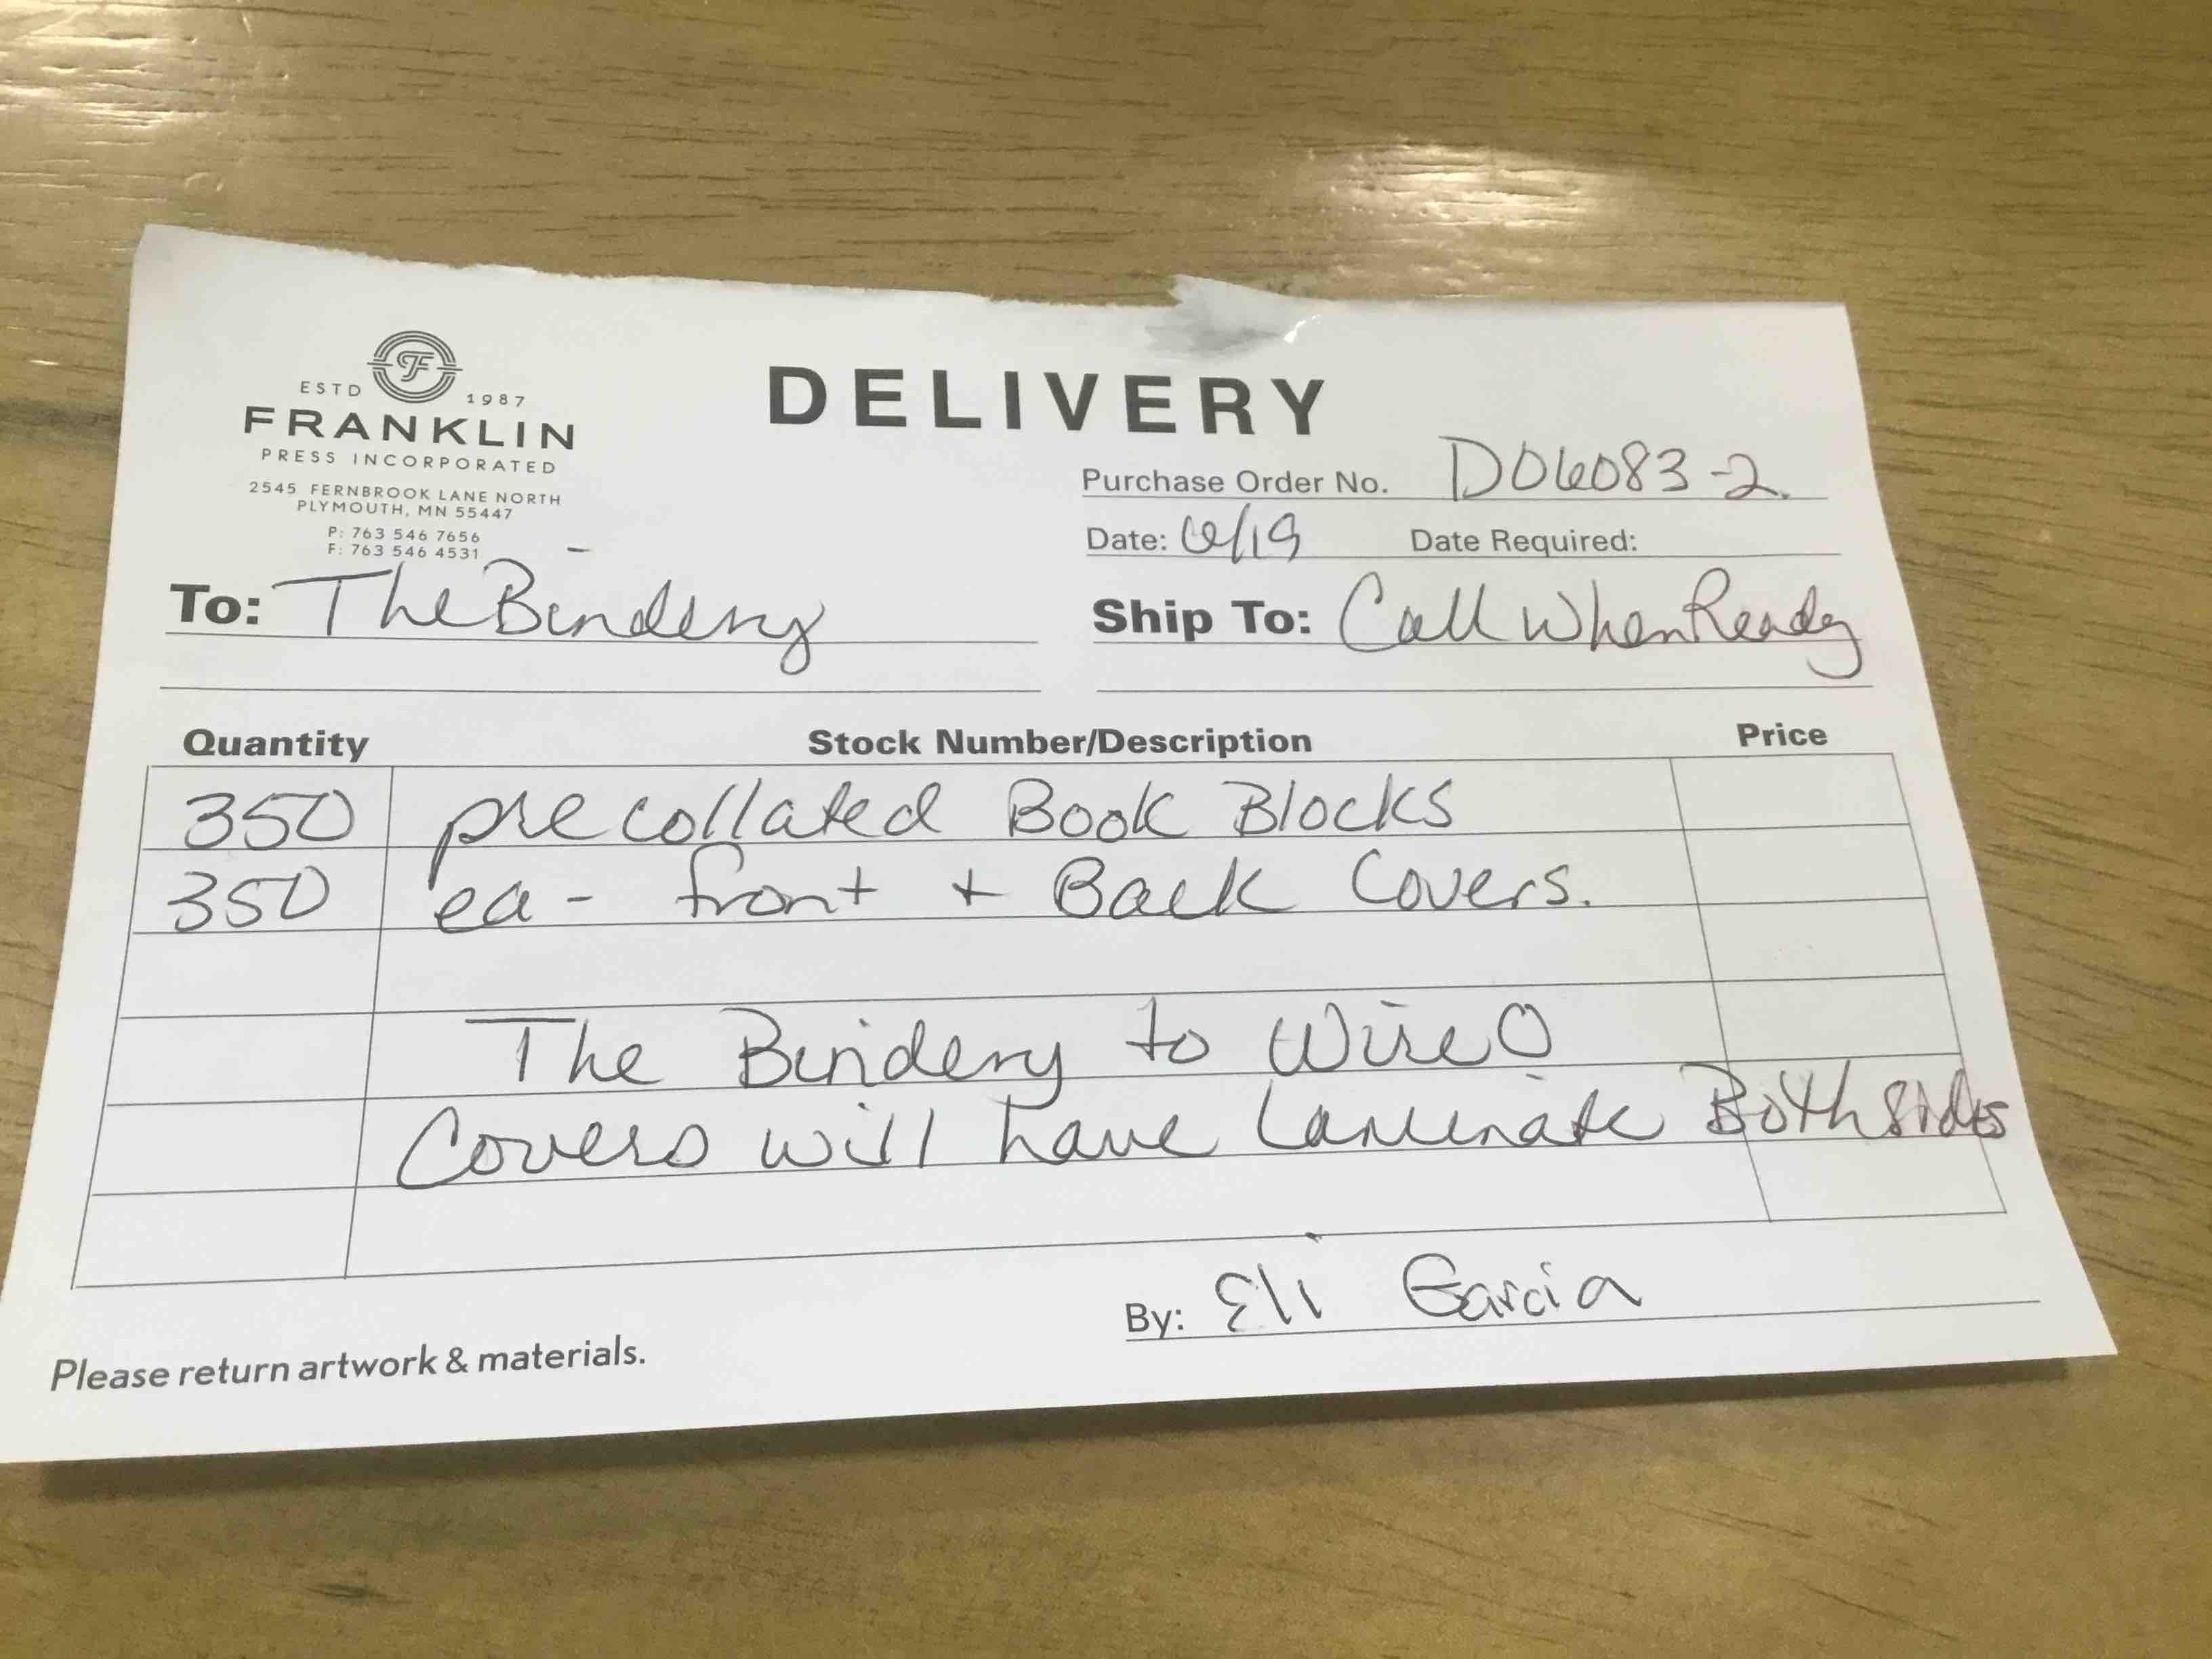 ESTD 1987
FRANKLIN
PRESS INCORPORATED
2545 FERNBROOK LANE NORTH
PLYMOUTH, MN 55447
P: 763 546 7656
F: 763 546 4531
DELIVERY
Purchase Order No. D06083-2.
Date: 6/19 Date Required:
To: The Bindery
Ship To: Call When Ready
Quantity Stock Number/Description Price
350 precollated Book Blocks
350 ea - front + Back Covers.
The Bindery to Wire O
Covers will have Laminate Both sides
By: Eli Garcia
Please return artwork & materials.